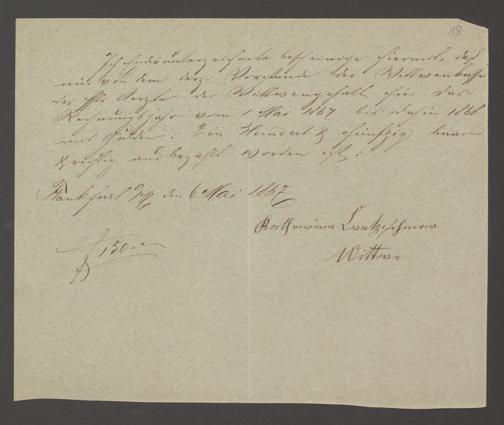 18.
Ich Endesunterzeichnete bescheinige hiermit, daß
mir von dem derz. Vorstande der Wittwenkasse
der Aerzte der Wittwengehalt für das
Rechnungsjahr vom 1 Mai 1867 bis dahin 1868
mit Gulden: Ein Hundert & fünfzig baar
& richtig ausbezahlt worden ist:
Frankfurt den 6 Mai 1867
Katharina
Wittwe
f 150.-